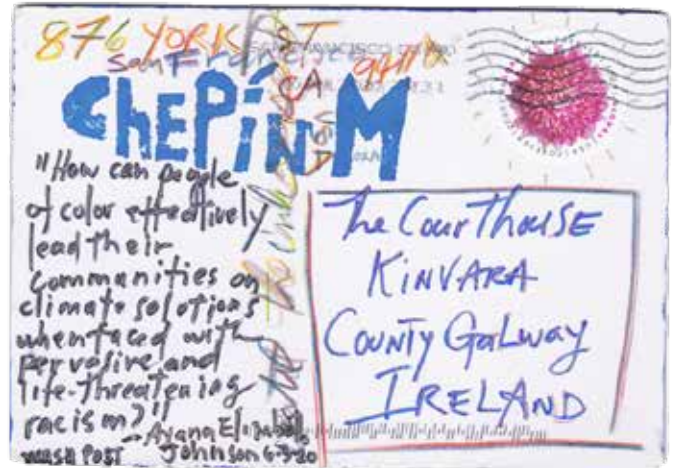 876 YORK ST
San Francisco
CA
SAN FRANCISCO
CHEPÍN M
"How can people
of color effectively
lead their
communities on
climate solutions
when faced with
pervasive and
life-threatening
racism?"
-Ayana Elizabeth
Johnson 6-3-20
WASH POST
The CourThouSE
KINVARA
COUNTY GALWAY
IRELAND